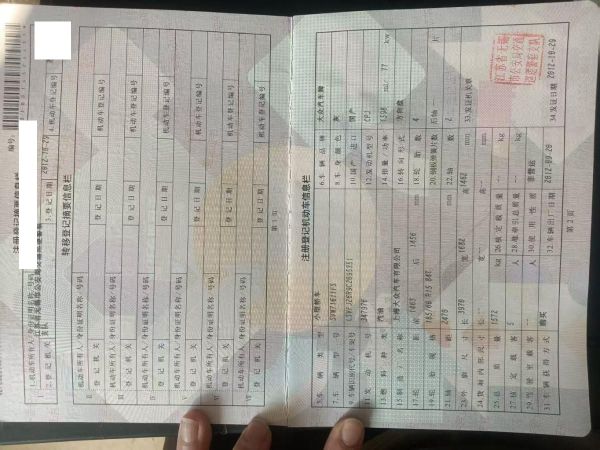 编号:
注册登记摘要信息栏
1.机动车所有人/身份证明名称/号码
2.登记机关 江苏省无锡市公安局交通巡逻警察支队 3.登记日期 2012-10-29 4.机动车登记编号
转移登记摘要信息栏
Ⅱ 机动车所有人/身份证明名称/号码
登记机关 登记日期 机动车登记编号
Ⅲ 机动车所有人/身份证明名称/号码
登记机关 登记日期 机动车登记编号
Ⅳ 机动车所有人/身份证明名称/号码
登记机关 登记日期 机动车登记编号
Ⅴ 机动车所有人/身份证明名称/号码
登记机关 登记日期 机动车登记编号
Ⅵ 机动车所有人/身份证明名称/号码
登记机关 登记日期 机动车登记编号
Ⅶ 机动车所有人/身份证明名称/号码
登记机关 登记日期 机动车登记编号
第1页
注册登记机动车信息栏
5.车辆类型 小型轿车 6.车辆品牌 大众汽车牌
7.车辆型号 8.车身颜色 灰
9.车辆识别代号/车架号 10.国产/进口 国产
11.发动机号 12.发动机型号
13.燃料种类 汽油 14.排量/功率 ml/ 77 kw
15.制造厂名称 上海大众汽车有限公司 16.转向形式 方向盘
17.轮距 前 后 1456 mm 18.轮胎数 4
19.轮胎规格 185/60 R15 84T 20.钢板弹簧片数 后轴 片
21.轴距 2470 mm 22.轴数 2
23.外廓尺寸 长 3970 宽 1682 高 1462 mm 33.发证机关章
24.货厢内部尺寸 长 宽 高 mm
25.总质量 1572 kg 26.核定载质量 kg
27.核定载客 5 人 28.准牵引总质量 kg
29.驾驶室载客 人 30.使用性质 非营运
31.车辆获得方式 购买 32.车辆出厂日期 34.发证日期 2012-10-29
江苏省无锡市公安局交通巡逻警察支队
第2页